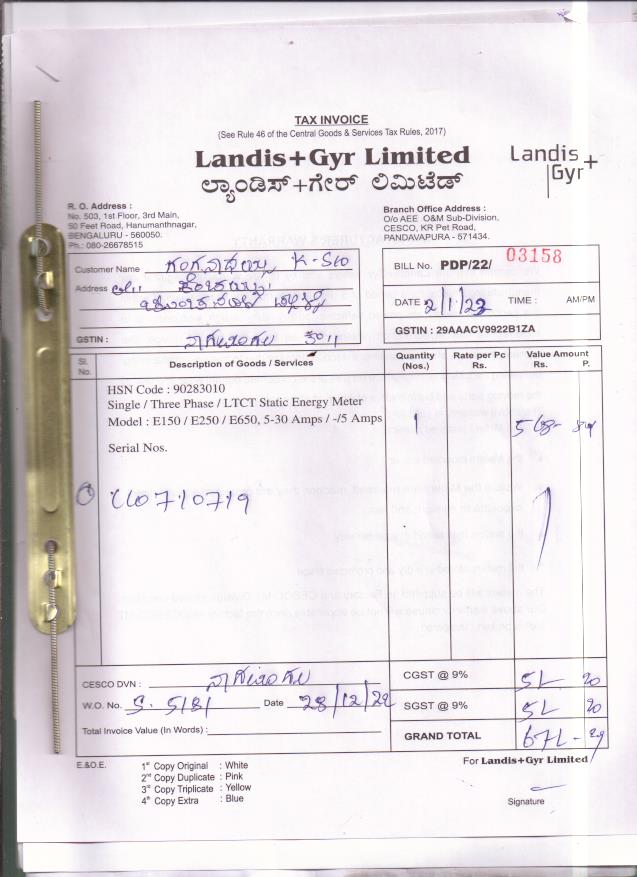 TAX INVOICE
(See Rule 46 of the Central Goods & Services Tax Rules, 2017)
Landis+Gyr Limited
ಲ್ಯಾಂಡಿಸ್+ಗೇರ್ ಲಿಮಿಟೆಡ್
Landis
Gyr+
R. O. Address :
No. 503, 1st Floor, 3rd Main,
50 Feet Road, Hanumanthnagar,
BENGALURU - 560050.
Ph.: 080-26678515
Branch Office Address :
O/o AEE O&M Sub-Division,
CESCO, KR Pet Road,
PANDAVAPURA - 571434.
Customer Name
Address
GSTIN :
BILL No. PDP/22/ 03158
DATE 2/1/23 TIME : AM/PM
GSTIN : 29AAACV9922B1ZA
Sl. No. Description of Goods / Services Quantity (Nos.) Rate per Pc Rs. Value Amount Rs. P.
HSN Code : 90283010
Single / Three Phase / LTCT Static Energy Meter
Model : E150 / E250 / E650, 5-30 Amps / -/5 Amps 1
Serial Nos.
CESCO DVN :
CGST @ 9%
W.O. No. Date 28/12/22
SGST @ 9%
Total Invoice Value (In Words) :
GRAND TOTAL
E.&O.E.
For Landis+Gyr Limited
1st Copy Original : White
2nd Copy Duplicate : Pink
3rd Copy Triplicate : Yellow
4th Copy Extra : Blue
Signature